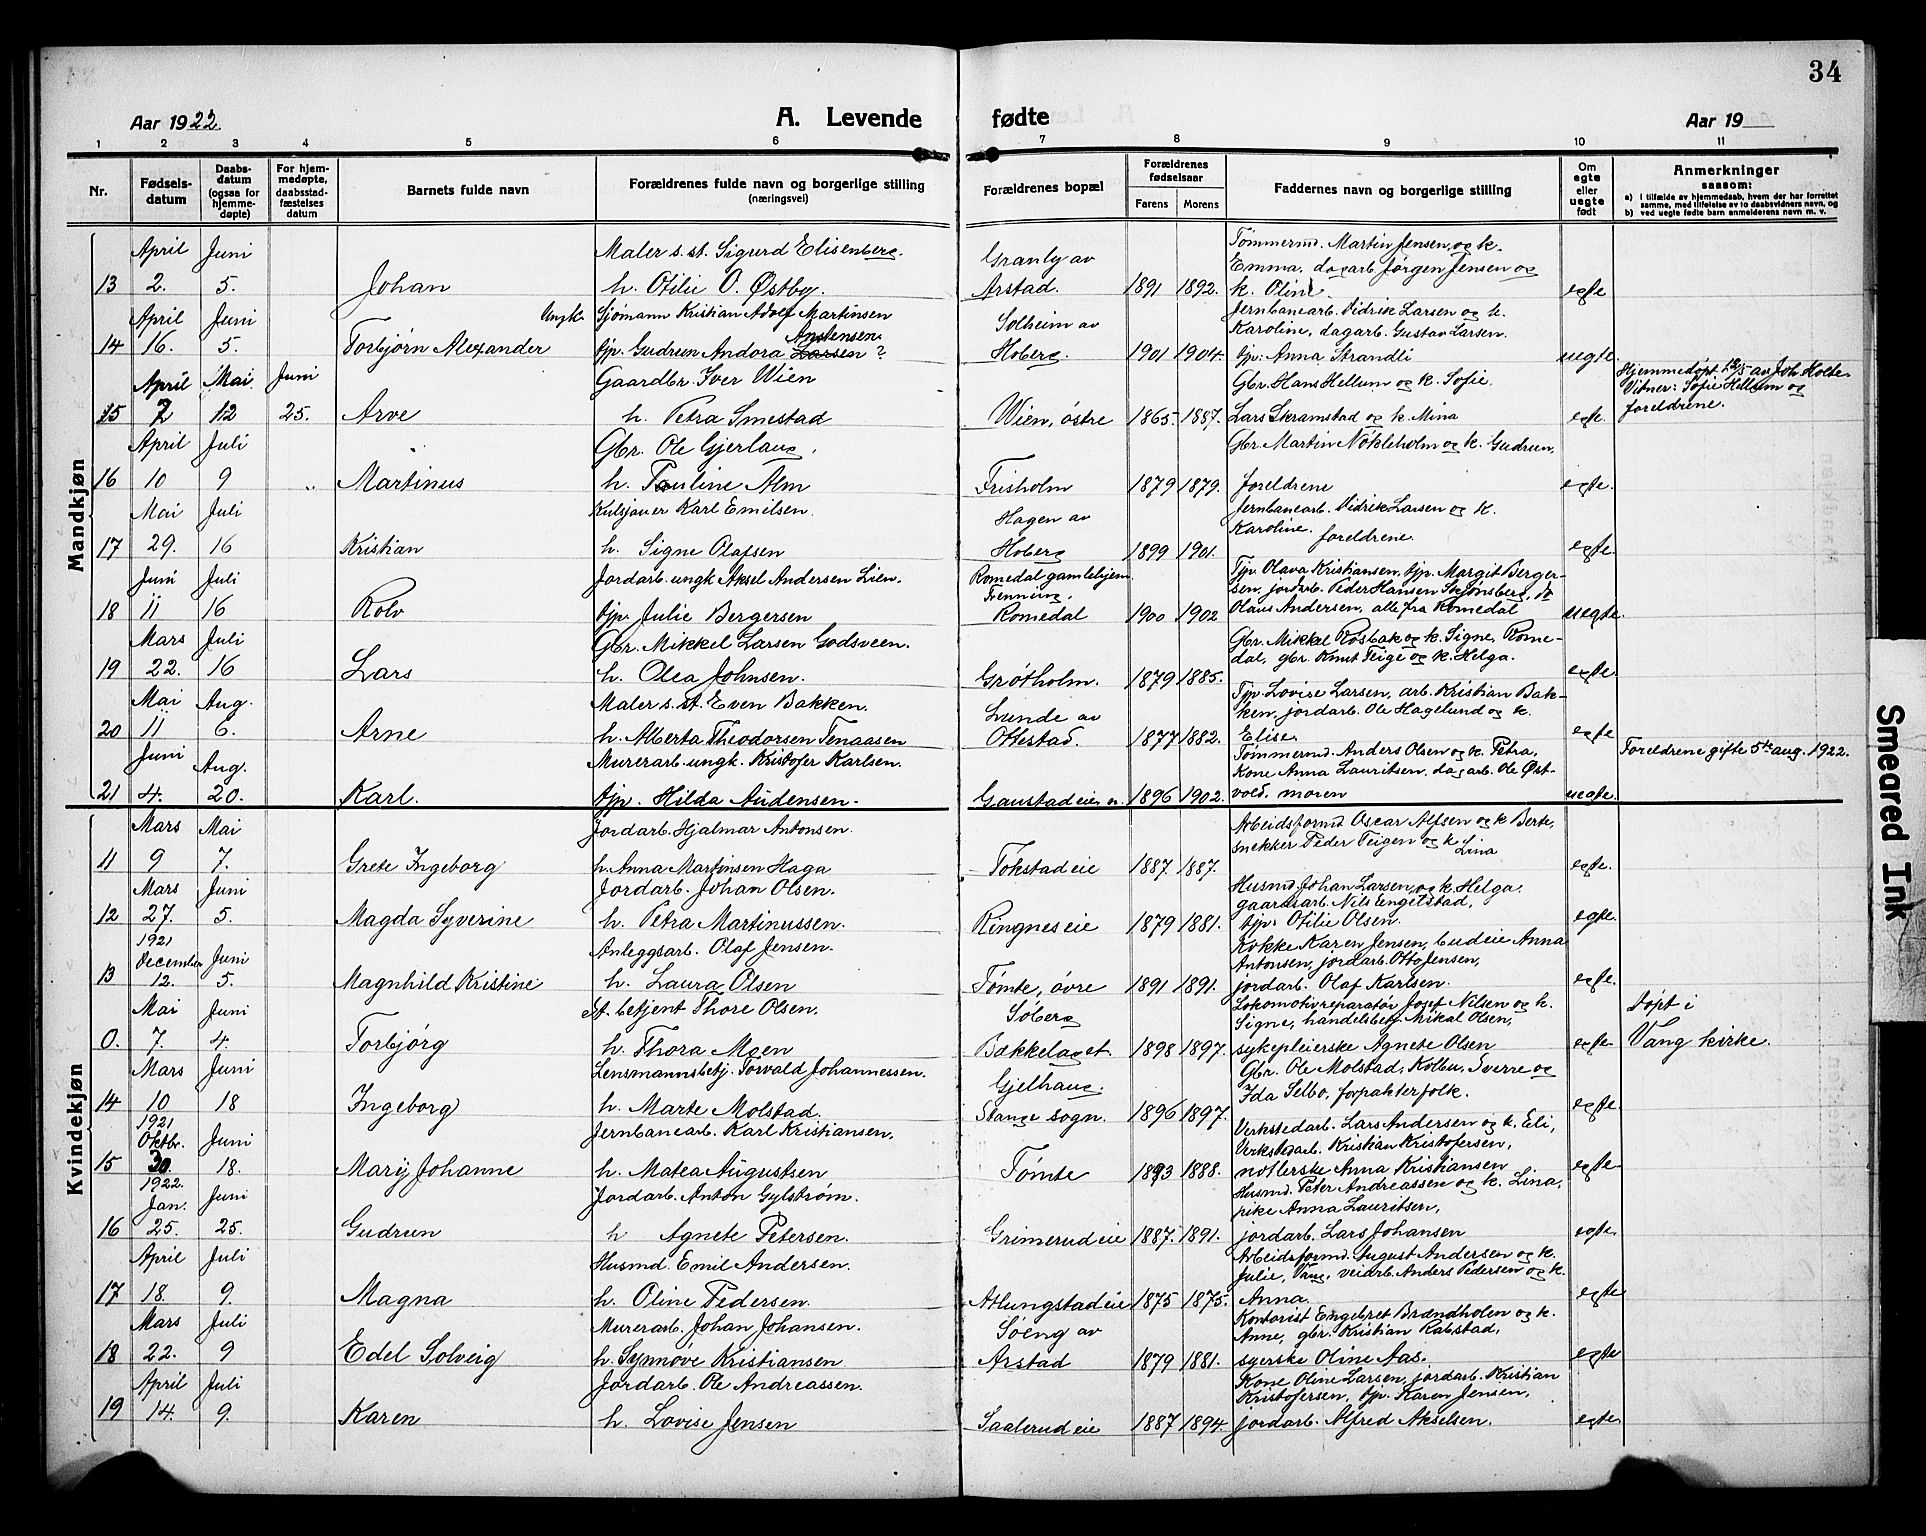 34
Aar 1922.
A. Levende fødte
Aar 19
1 2 3 4 5 6 7 8 9 10 11
Nr.
Fødsels-
datum
Daabs-
datum
(ogsaa for
hjemme-
døpte)
For hjem-
medøpte,
daabsstad-
fæstelses
datum
Barnets fulde navn
Forældrenes fulde navn og borgerlige stilling
(næringsvei)
Forældrenes bopæl
Forældrenes
fødselsaar
Farens Morens
Faddernes navn og borgerlige stilling
Om
egte
eller
uegte
født
Anmerkninger
saasom:
a) i tilfælde av hjemmedaab, hvem der har forrettet
samme, med tilføielse av to daabsvidners navn, og
b) ved uegte fødte barn anmelderens navn m. v.
Mandkjøn
April Juni Maler s. st. Sigurd Elisenberg. Granly av Tømmermd. Martin Jensen, og k.
Emma, dagarb. Jørgen Jensen og
13 2. 5. Johan h. Otilie O. Østby. Arstad. 1891 1892. k. Oline. egte
April Juni Ungk. Sjømann Kristian Adolf Martinsen Solheim av Jernbanearb. Didrik Larsen og k.
Anstensen Karoline, dagarb. Gustav Larsen.
14 16. 5. Torbjørn Alexander tjp. Gudrun Andora Larsen ? Hoberg. 1901 1904. tjp. Anna Strandli uegte.
April Mai Juni Gaardbr. Iver Wien Gbr. Hans Hellum og k. Sofie. Hjemmedøpt 12/5 av Joh. Holte.
Vitner: Sofie Hellum og
15 2 12 25. Arve h. Petra Smestad Wien, østre 1865. 1887. Lars Skramstad og k. Mina egte. foreldrene.
April Juli Gbr. Ole Gjerlaug. Gbr. Martin Nøkleholm og k. Gudrun,
16 10 9 Martinus h. Pauline Alm Frisholm 1879 1879. foreldrene egte.
Mai Juli Kulsjauer Karl Emilsen. Hagen av Jernbanearb. Didrik Larsen og k.
Karoline. foreldrene.
17 29. 16 Kristian h. Signe Olafsen Hoberg 1899 1901. egte.
Juni Juli Jordarb. ungk. Aksel Andersen Lien. Romedal gamlehjem Tjp. Olava Kristiansen, tjp. Margit Berger-
Frenning, sen, jordarb. Peder Hansen Skjønsberg, do
18 11 16 Rolv tjp. Julie Bergersen Romedal 1900 1902 Olaus Andersen, alle fra Romedal uegte.
Mars Juli Gbr. Mikkel Larsen Godsveen. Gbr. Mikkel Rosbak og k. Signe, Rome-
19 22. 16 Lars h. Olea Johnsen. Grøtholm. 1879 1885. dal, gbr. Knut Teige og k. Helga. egte
Mai Aug. Maler s. st. Even Bakken. Lunde av Tjp. Lovise Larsen, arb. Kristian Bak-
ken, jordarb. Ole Hagelund og k.
20 11 6. Arne h. Alberta Theodorsen Tenaasen Ottestad. 1877 1882. Elise. egte
Juni Aug. Murerarb. ungk. Kristofer Karlsen. Tømmermd. Anders Olsen og k. Petra, Foreldrene gifte 5te aug. 1922.
Kone Anna Lauritsen, dagarb. Ole Øst-
21 4. 20. Karl. tjp. Hilda Audensen. Gaustadeie n. 1896 1902. vold. moren uegte.
Kvindekjøn
Mars Mai Jordarb. Hjalmar Antonsen. Arbeidsformd. Oscar Alfsen og k. Berte,
11 9 7. Grete Ingeborg h. Anna Martinsen Haga Tokstadeie 1887. 1887. snekker Peder Teigen og k. Lina egte.
Mars Juni Jordarb. Johan Olsen. Husmd. Johan Larsen, og k. Helga.
gaardsarb. Nils Engelstad,
12 27. 5. Magda Syverine h. Petra Martinussen. Ringneseie 1879 1881. tjp. Otilie Olsen. egte.
1921 December Juni Anleggsarb. Olaf Jensen. Kokke Karen Jensen, budeie Anna
Antonsen, jordarb. Otto Jensen,
13 12. 5. Magnhild Kristine h. Laura Olsen Tømte, øvre 1891 1891. jordarb. Olaf Karlsen. egte.
Mai Juni St. betjent Thore Olsen. Søberg Lokomotivreparatør Josef Nilsen og k. Døpt i
Signe, handelsbetj. Mikal Olsen,
0. 7. 4. Torbjørg h. Thora Moen Bækkelaget. 1898 1897. sykepleierske Agnete Olsen egte Vang kirke.
Mars Juni Lensmannsbetj. Torvald Johannessen. Gjelhaug. Gbr. Ole Molstad, Kolbu, Sverre og
Ida Selbo, forpakterfolk.
14 10 18 Ingeborg h. Marte Molstad. Stange sogn. 1896 1897. egte.
1921 Oktbr. Juni Jernbanearb. Karl Kristiansen. Verkstedarb. Lars Andersen og k. Eli,
Verkstedarb. Kristian Kristofersen,
15 30. 18. Mary Johanne h. Matea Augustsen Tømte 1893 1888. Anna Kristiansen egte
1922. Jan. Juni Jordarb. Anton Gylstrøm. Husmd. Peter Andreassen og k. Lina,
pike Anna Lauritsen,
16 25. 25. Gudrun h Agnete Petersen. Grimerudeie 1887. 1891. jordarb. Lars Johansen egte
April Juli Husmd. Emil Andersen. Arbeidsformd. August Andersen og k.
Julie, Vang, veiarb. Anders Pedersen og k.
17 18. 9. Magna h. Oline Pedersen. Atlungstadeie 1875 1875. Anna. egte
Mars Juli Murerarb. Johan Johansen. Søeng av Kontorist Engebret Brændholen og k.
Anne, gbr. Kristian Rabstad,
18 22. 9 Edel Solveig h. Synnøve Kristiansen Arstad 1879 1881. syerske Oline Aas. egte
April Juli Jordarb. Ole Andreassen. Kone Oline Larsen, jordarb. Kristian
Kristofersen, tjp. Karen Jensen,
19 14. 9. Karen h. Lovise Jensen Saalerudeie 1887 1894. Jordarb. Alfred Akselsen. egte.
Smeared Ink